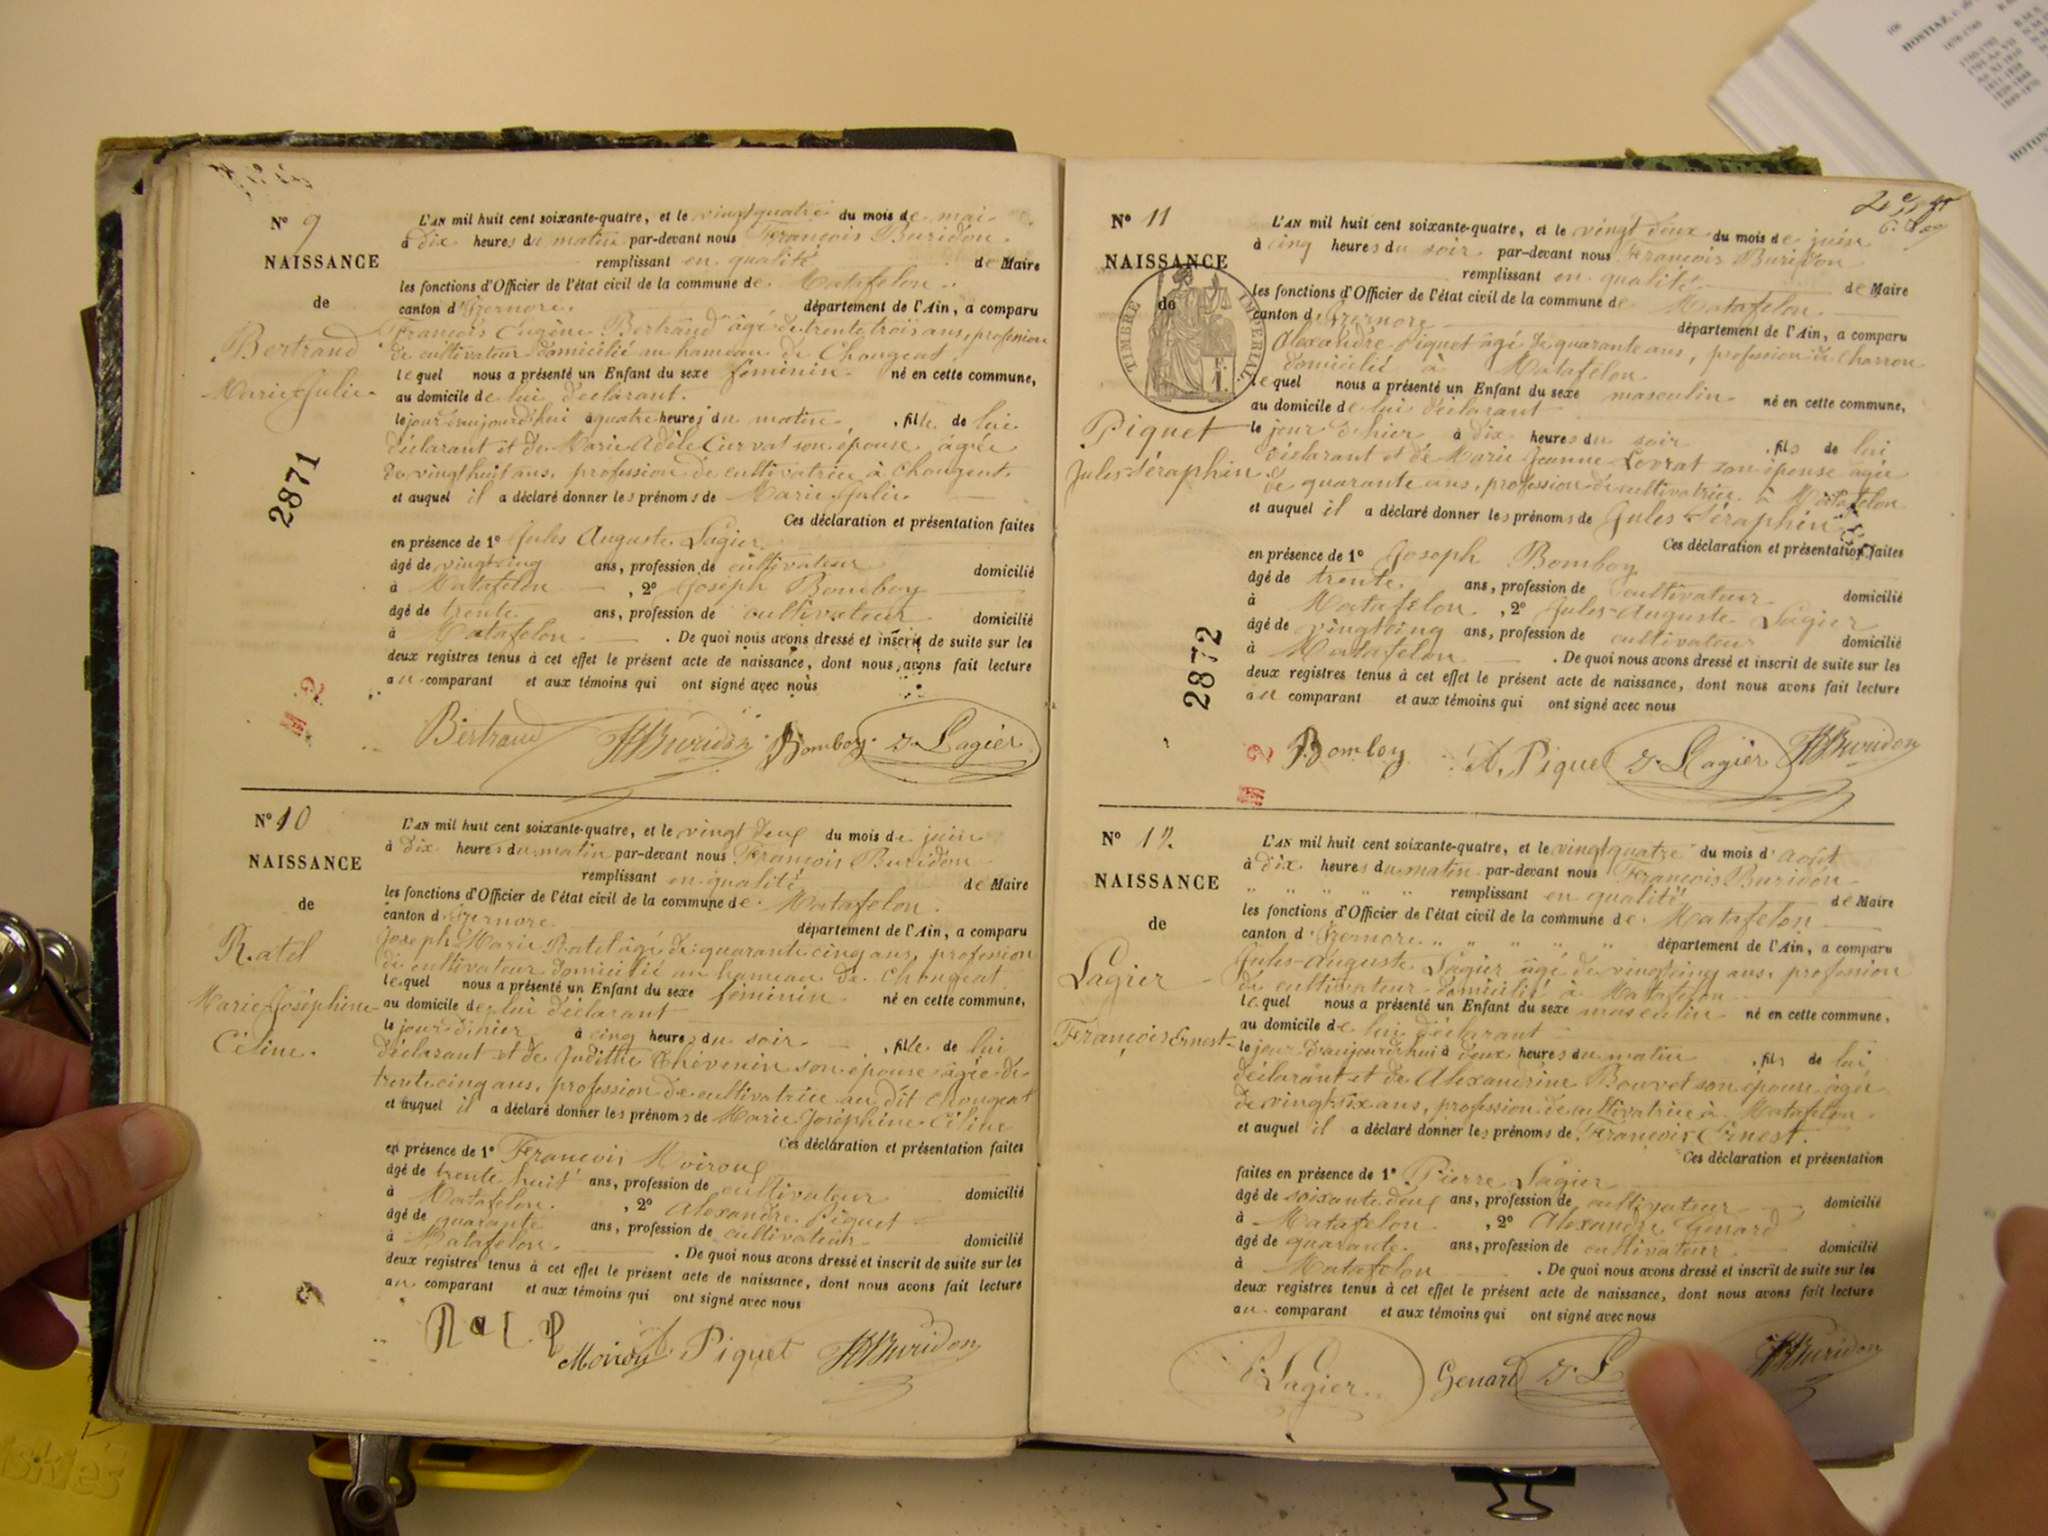 Nº 9
NAISSANCE
de
Bertrand
Marie Julie
2871
L'AN mil huit cent soixante-quatre, et le vingt quatre du mois de mai
à dix heures du matin par-devant nous François Buridon
remplissant en qualité de Maire
les fonctions d'Officier de l'état civil de la commune de Matafelon
canton d'Izernore département de l'Ain, a comparu
François Eugène Bertrand âgé de trente trois ans, profession
de cultivateur domicilié au hameau de Chougeat
lequel nous a présenté un Enfant du sexe féminin né en cette commune,
au domicile de lui déclarant.
le jour d'aujourd'hui à quatre heures du matin, fille de lui
déclarant et de Marie Adèle Curvat son épouse âgée
de vingt huit ans, profession de cultivatrice à Chougeat
et auquel il a déclaré donner les prénoms de Marie Julie
Ces déclaration et présentation faites
en présence de 1º Jules Auguste Lagier
âgé de vingt cinq ans, profession de cultivateur domicilié
à Matafelon, 2º Joseph Bomboy
âgé de trente ans, profession de cultivateur domicilié
à Matafelon. De quoi nous avons dressé et inscrit de suite sur les
deux registres tenus à cet effet le présent acte de naissance, dont nous avons fait lecture
au comparant et aux témoins qui ont signé avec nous
Bertrand Buridon Bomboy J. Lagier
Nº 10
NAISSANCE
de
Ratel
Marie Joséphine
Céline.
L'AN mil huit cent soixante-quatre, et le vingt deux du mois de juin
à dix heures du matin par-devant nous François Buridon
remplissant en qualité de Maire
les fonctions d'Officier de l'état civil de la commune de Matafelon.
canton d'Izernore département de l'Ain, a comparu
Joseph Marie Ratel âgé de quarante cinq ans, profession
de cultivateur domicilié au hameau de Chougeat
lequel nous a présenté un Enfant du sexe féminin né en cette commune,
au domicile de lui déclarant
le jour d'hier à cinq heures du soir, fille de lui
déclarant et de Judithe Thévenin son épouse âgée de
trente cinq ans, profession de cultivatrice au dit Chougeat
et auquel il a déclaré donner les prénoms de Marie Joséphine Céline
Ces déclaration et présentation faites
en présence de 1º François Moiroux
âgé de trente huit ans, profession de cultivateur domicilié
à Matafelon, 2º Alexandre Piquet
âgé de quarante ans, profession de cultivateur domicilié
à Matafelon. De quoi nous avons dressé et inscrit de suite sur les
deux registres tenus à cet effet le présent acte de naissance, dont nous avons fait lecture
au comparant et aux témoins qui ont signé avec nous
Piquet Buridon
Nº 11
NAISSANCE
de
TIMBRE IMPERIAL
Piquet
Jules Séraphin
2872
L'AN mil huit cent soixante-quatre, et le vingt deux du mois de juin
à cinq heures du soir par-devant nous François Buridon
remplissant en qualité de Maire
les fonctions d'Officier de l'état civil de la commune de Matafelon
canton d'Izernore département de l'Ain, a comparu
Alexandre Piquet âgé de quarante ans, profession de Charron
domicilié à Matafelon
lequel nous a présenté un Enfant du sexe masculin né en cette commune,
au domicile de lui déclarant
le jour d'hier à dix heures du soir, fils de lui
déclarant et de Marie Jeanne Levrat son épouse âgée
de quarante ans, profession de cultivatrice à Matafelon
et auquel il a déclaré donner les prénoms de Jules Séraphin
Ces déclaration et présentation faites
en présence de 1º Joseph Bomboy
âgé de trente ans, profession de cultivateur domicilié
à Matafelon, 2º Jules-Auguste Lagier
âgé de vingt cinq ans, profession de cultivateur domicilié
à Matafelon. De quoi nous avons dressé et inscrit de suite sur les
deux registres tenus à cet effet le présent acte de naissance, dont nous avons fait lecture
au comparant et aux témoins qui ont signé avec nous
Bomboy A. Piquet J. Lagier Buridon
Nº 12
NAISSANCE
de
Lagier
François Ernest
L'AN mil huit cent soixante-quatre, et le vingt quatre du mois d'août
à dix heures du matin par-devant nous François Buridon
remplissant en qualité de Maire
les fonctions d'Officier de l'état civil de la commune de Matafelon
canton d'Izernore département de l'Ain, a comparu
Jules-Auguste Lagier âgé de vingt cinq ans, profession
de cultivateur domicilié à Matafelon
lequel nous a présenté un Enfant du sexe masculin né en cette commune,
au domicile de lui déclarant
le jour d'aujourd'hui à deux heures du matin, fils de lui
déclarant et de Alexandrine Bouvet son épouse âgée
de vingt-six ans, profession de cultivatrice à Matafelon.
et auquel il a déclaré donner les prénoms de François Ernest.
Ces déclaration et présentation
faites en présence de 1º Pierre Lagier
âgé de soixante deux ans, profession de cultivateur domicilié
à Matafelon, 2º Alexandre Genard
âgé de quarante ans, profession de cultivateur domicilié
à Matafelon. De quoi nous avons dressé et inscrit de suite sur les
deux registres tenus à cet effet le présent acte de naissance, dont nous avons fait lecture
au comparant et aux témoins qui ont signé avec nous
P. Lagier Genard J. L Buridon